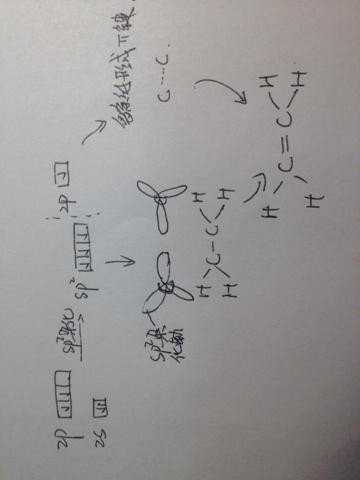 2p
sp²杂化
sp²
2p
2s
形成π键.
C……C.
sp²杂
化轨
H
H
C-C
H
H
H
H
C=C
H
H